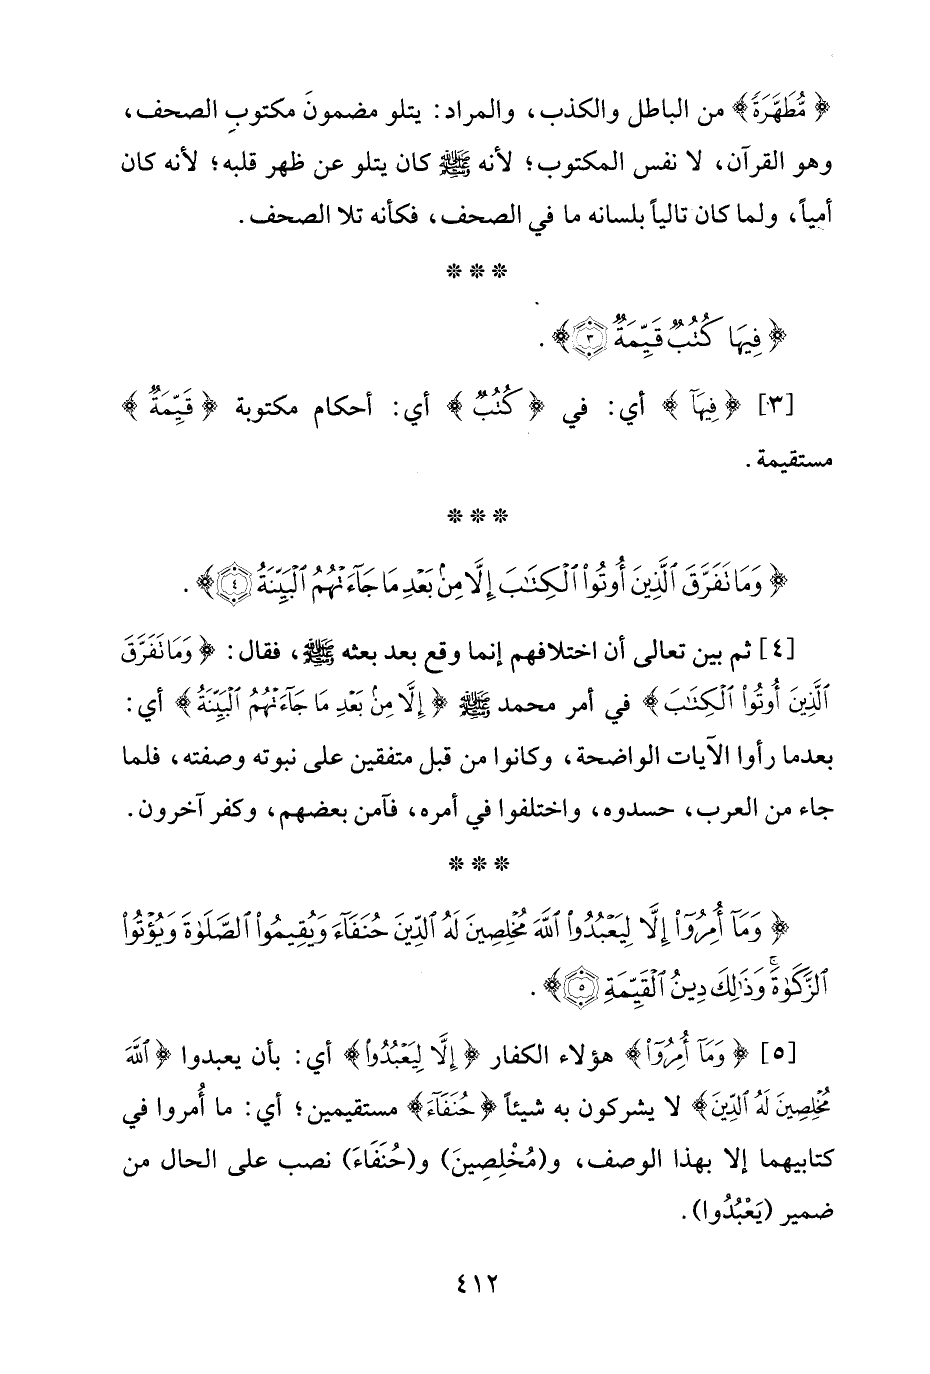 ﴿مُّطَهَّرَةً﴾ من الباطل والكذب، والمراد: يتلو مضمونَ مكتوبِ الصحف،
وهو القرآن، لا نفس المكتوب؛ لأنه ﷺ كان يتلو عن ظهر قلبه؛ لأنه كان
أمياً، ولما كان تالياً بلسانه ما في الصحف، فكأنه تلا الصحف.
* * *
﴿فِيهَا كُتُبٌ قَيِّمَةٌ ٣﴾.
[٣] ﴿فِيهَا﴾ أي: في ﴿كُتُبٌ﴾ أي: أحكام مكتوبة ﴿قَيِّمَةٌ﴾
مستقيمة.
* * *
﴿وَمَا تَفَرَّقَ ٱلَّذِينَ أُوتُوا۟ ٱلْكِتَٰبَ إِلَّا مِنۢ بَعْدِ مَا جَآءَتْهُمُ ٱلْبَيِّنَةُ ٤﴾.
[٤] ثم بين تعالى أن اختلافهم إنما وقع بعد بعثه ﷺ، فقال: ﴿وَمَا تَفَرَّقَ
ٱلَّذِينَ أُوتُوا۟ ٱلْكِتَٰبَ﴾ في أمر محمد ﷺ ﴿إِلَّا مِنۢ بَعْدِ مَا جَآءَتْهُمُ ٱلْبَيِّنَةُ﴾ أي:
بعدما رأوا الآيات الواضحة، وكانوا من قبل متفقين على نبوته وصفته، فلما
جاء من العرب، حسدوه، واختلفوا في أمره، فآمن بعضهم، وكفر آخرون.
* * *
﴿وَمَآ أُمِرُوٓا۟ إِلَّا لِيَعْبُدُوا۟ ٱللَّهَ مُخْلِصِينَ لَهُ ٱلدِّينَ حُنَفَآءَ وَيُقِيمُوا۟ ٱلصَّلَوٰةَ وَيُؤْتُوا۟
ٱلزَّكَوٰةَ ۚ وَذَٰلِكَ دِينُ ٱلْقَيِّمَةِ ٥﴾.
[٥] ﴿وَمَآ أُمِرُوٓا۟﴾ هؤلاء الكفار ﴿إِلَّا لِيَعْبُدُوا۟﴾ أي: بأن يعبدوا ﴿ٱللَّهَ
مُخْلِصِينَ لَهُ ٱلدِّينَ﴾ لا يشركون به شيئاً ﴿حُنَفَآءَ﴾ مستقيمين؛ أي: ما أُمروا في
كتابيهما إلا بهذا الوصف، و(مُخْلِصِينَ) و(حُنَفَاءَ) نصب على الحال من
ضمير (يَعْبُدُوا).
٤١٢